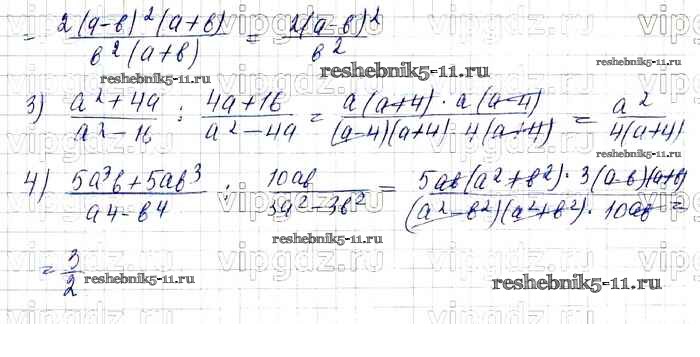 = 2(a-в)²(a+в) / в²(a+в) = 2(a-в)² / в²
reshebnik5-11.ru
reshebnik5-11.ru
3) a²+4a / a²-16 : 4a+16 / a²-4a = a(a+4)·a(a-4) / (a-4)(a+4)·4(a+4) = a² / 4(a+4)
reshebnik5-11.ru
4) 5a³в+5aв³ / a4-в4 : 10aв / 3a²-3в² = 5aв(a²+в²)·3(a-в)(a+в) / (a²-в²)(a²+в²)·10aв =
reshebnik5-11.ru
= 3/2
reshebnik5-11.ru
reshebnik5-11.ru
vipgdz.ru